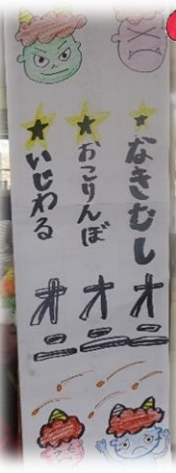 ★なきむしオニ
★おこりんぼオニ
★いじわるオニ